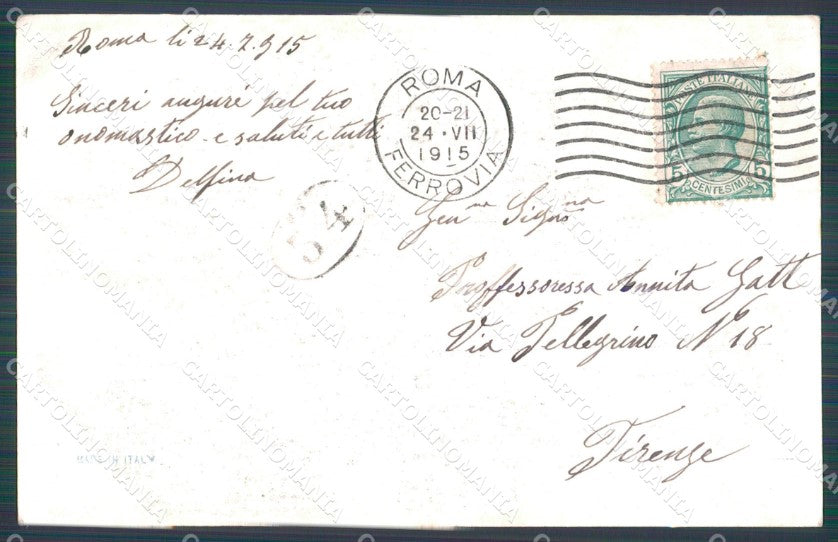 Roma li 24.7.915
Sinceri auguri pel tuo
onomastico e saluti a tutti
Delfina
ROMA
20-21
24·VII
1915
FERROVIA
POSTE ITALIANE
5 5
CENTESIMI
54
Gen.ma Sign.na
Proffessoressa Annita Gatt
Via Pellegrino No 18
Firenze
MADE IN ITALY
CARTOLINOMANIA